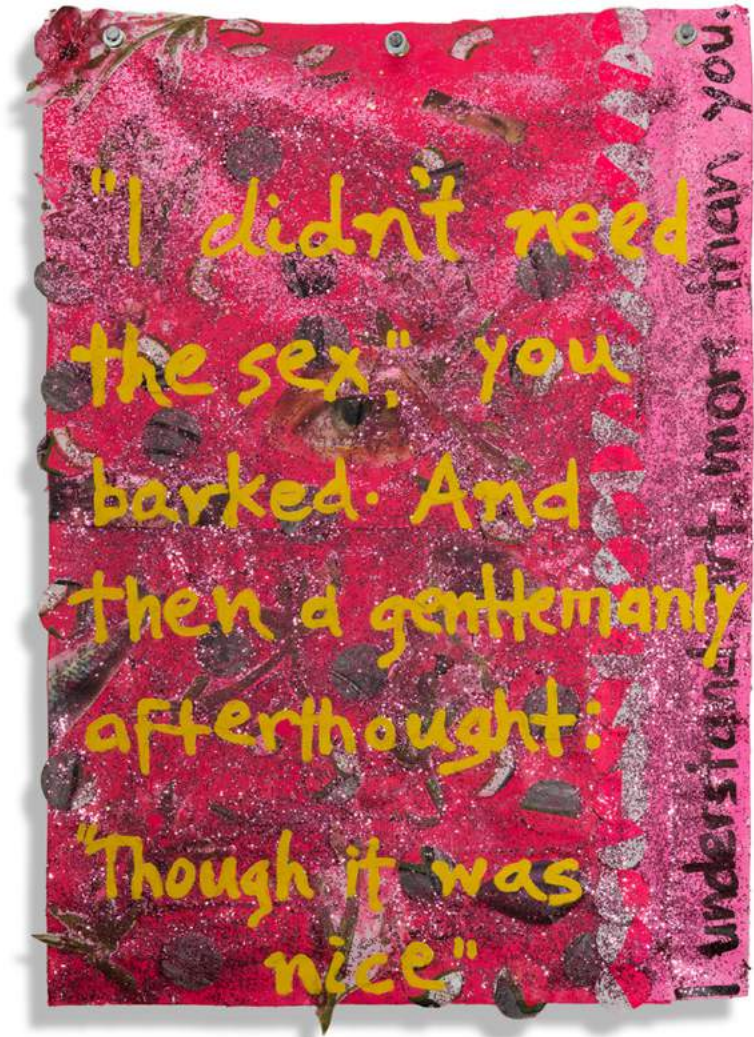 "I didn't need
the sex," you
barked. And
then a gentlemanly
afterthought:
"Though it was
nice"
I understand art more than you.